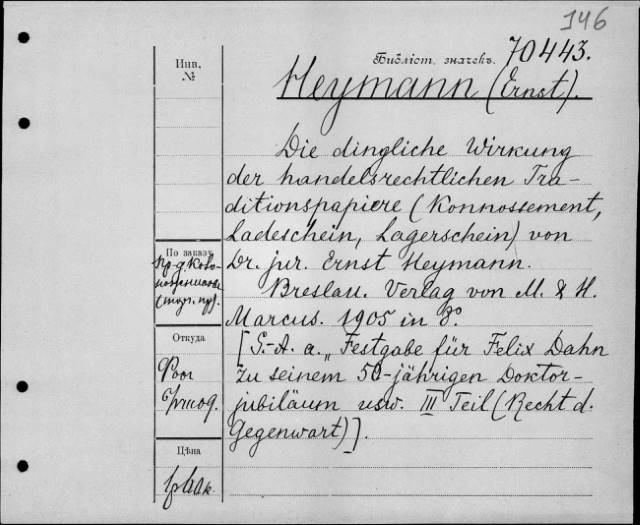 146
Библіот. значекъ. 70443.
Инв.
№
Heymann (Ernst).
Die dingliche Wirkung
der handelsrechtlichen Tra-
ditionspapiere (Konnossement,
Ladeschein, Lagerschein) von
Dr. jur. Ernst Heymann.
Breslau. Verlag von M. & H.
Marcus. 1905 in 8°.
[S.-A. a. „Festgabe für Felix Dahn
zu seinem 50-jährigen Doktor-
jubiläum usw. III Teil (Recht d.
Gegenwart)].
По заказу
Откуда
Цѣна